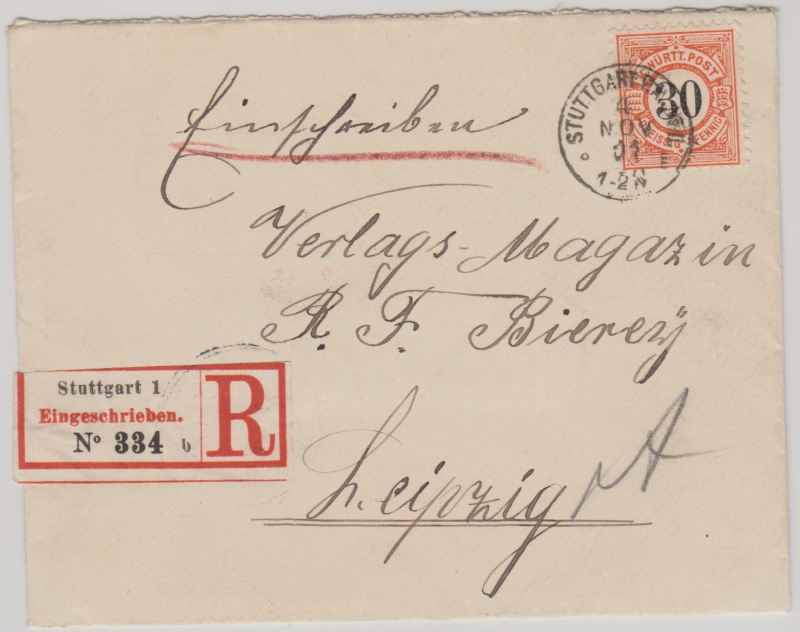 WÜRTT. POST
30
PFENNIG
STUTTGART
4
NOV
01
1-2N
Einschreiben
Verlags-Magazin
R. F. Bierey
Leipzig
Stuttgart 1
Eingeschrieben.
Nº 334 b
R